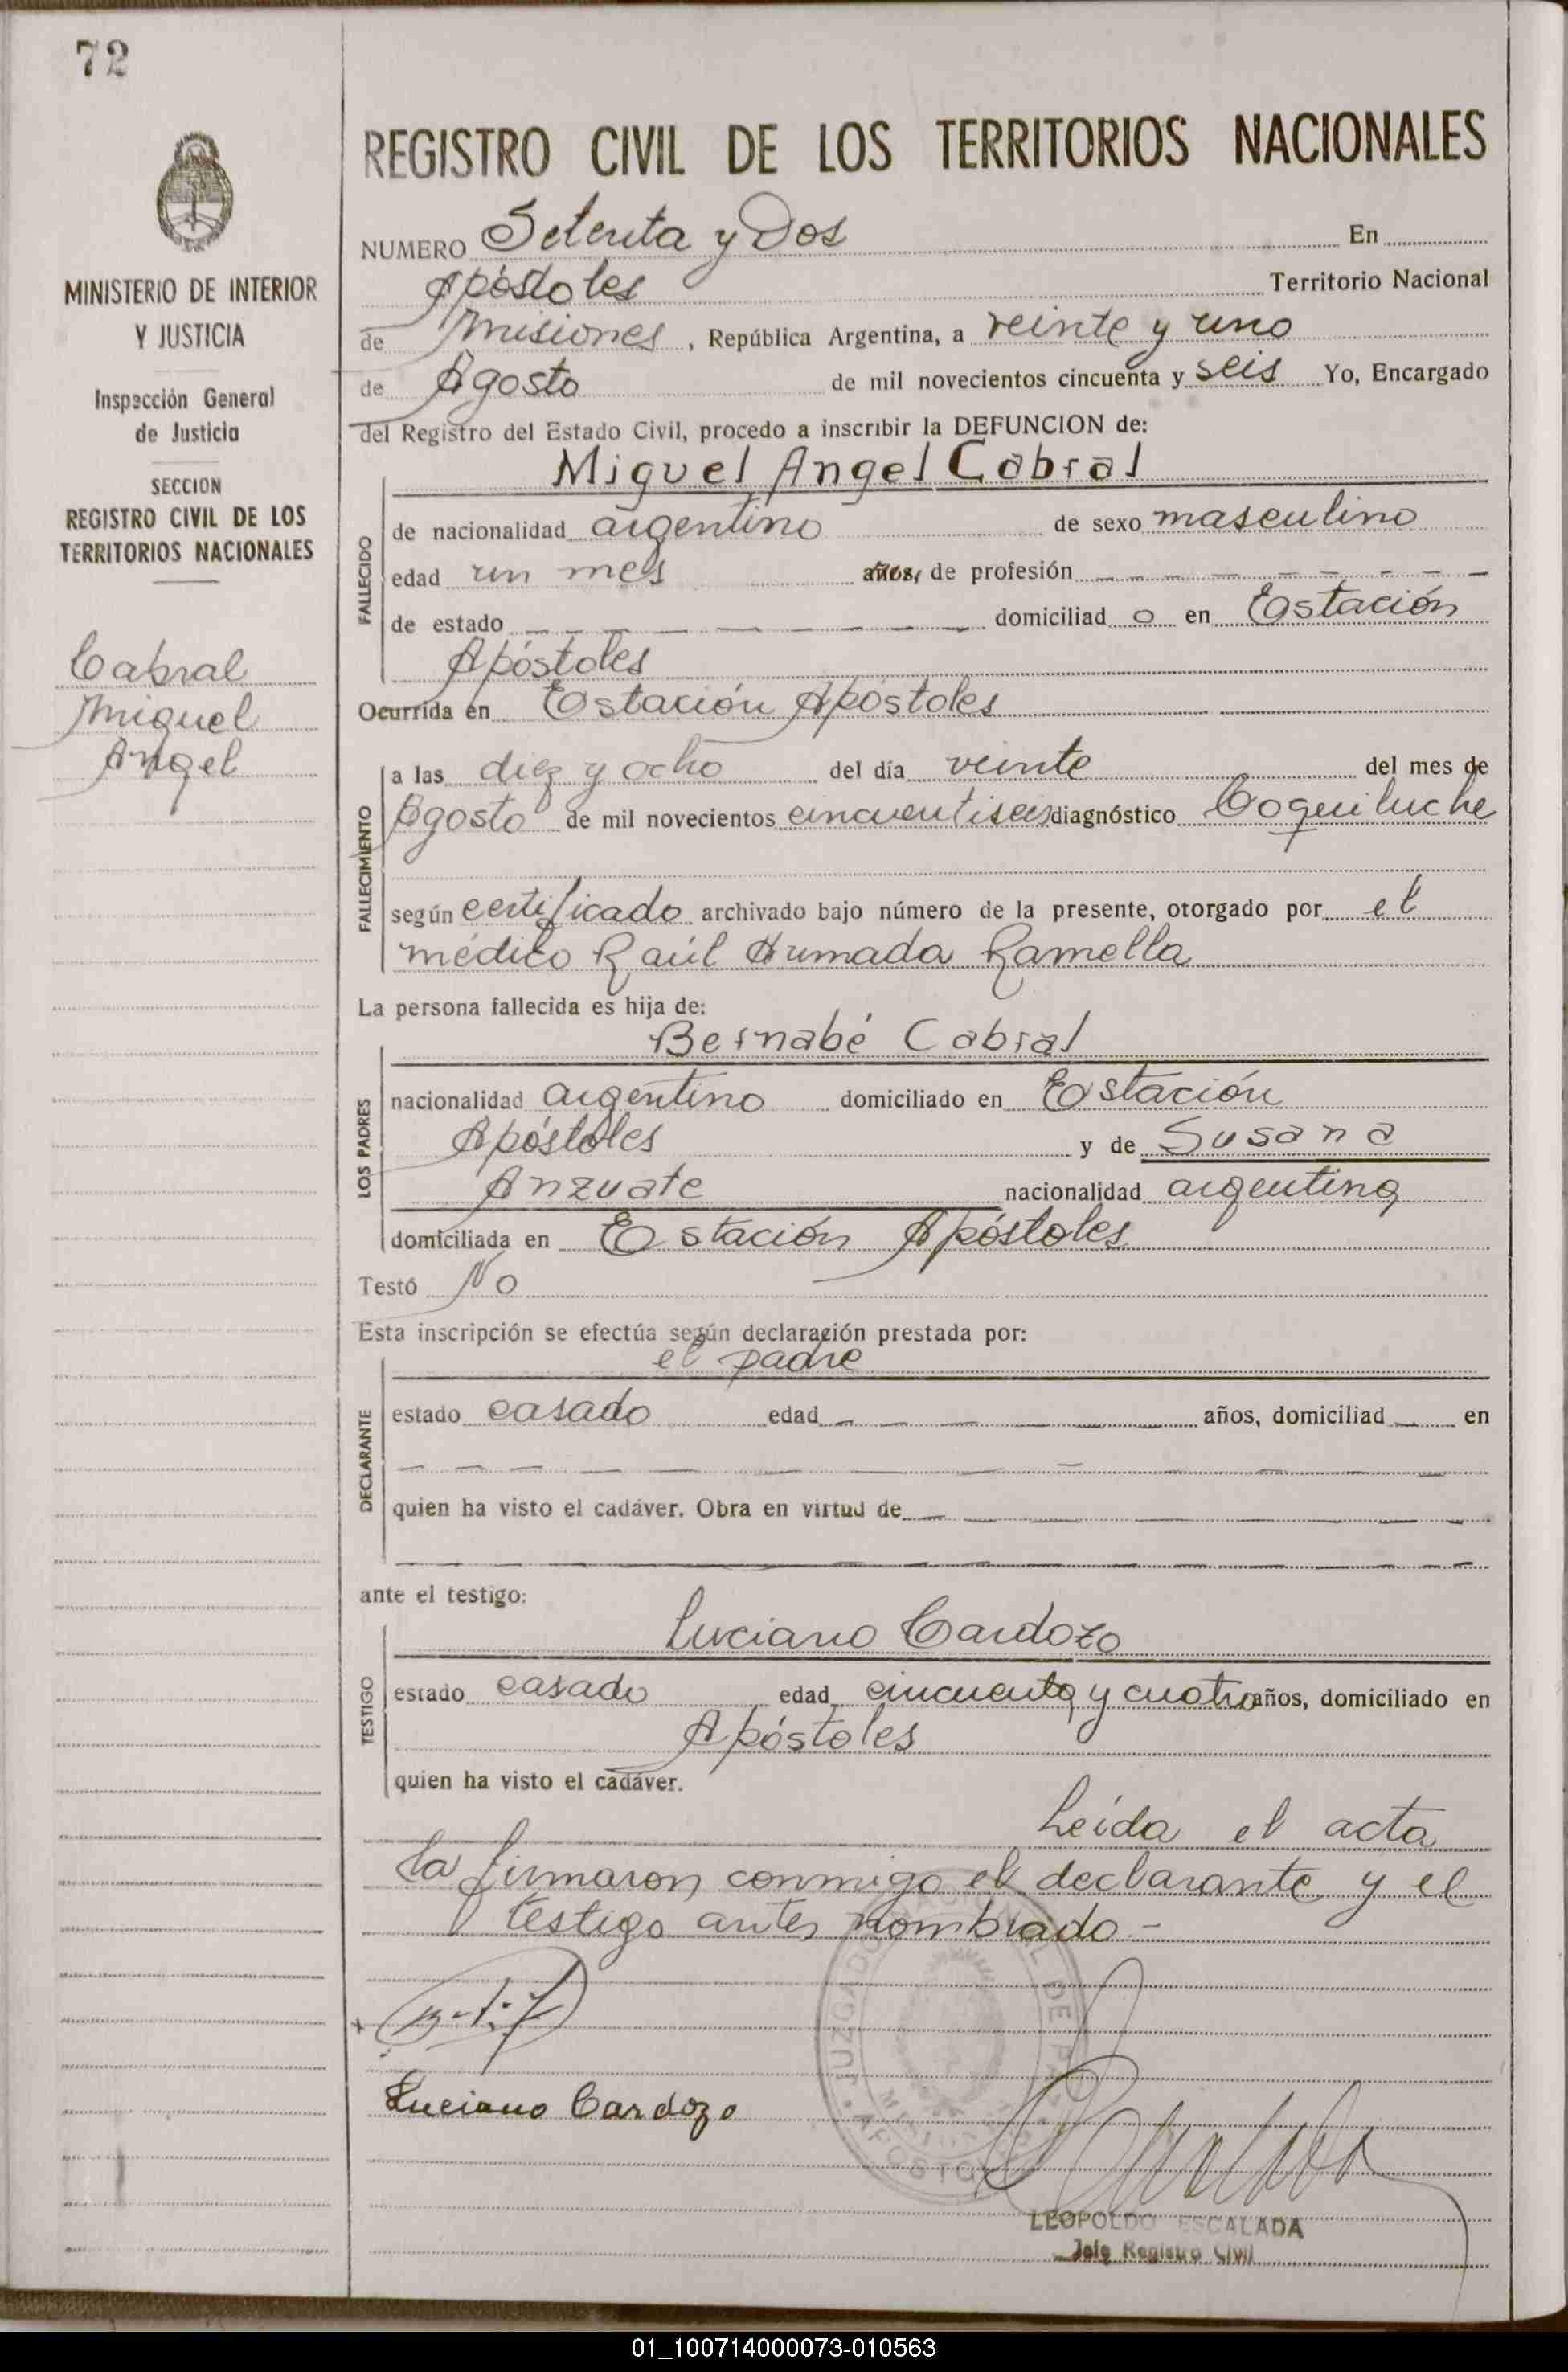 72
MINISTERIO DE INTERIOR
Y JUSTICIA
Inspección General
de Justicia
SECCION
REGISTRO CIVIL DE LOS
TERRITORIOS NACIONALES
Cabral
Miguel
Angel
REGISTRO CIVIL DE LOS TERRITORIOS NACIONALES
NUMERO Setenta y Dos En
Apóstoles Territorio Nacional
de Misiones, República Argentina, a veinte y uno
de Agosto de mil novecientos cincuenta y seis Yo, Encargado
del Registro del Estado Civil, procedo a inscribir la DEFUNCION de:
Miguel Angel Cabral
FALLECIDO
de nacionalidad argentino de sexo masculino
edad un mes años, de profesión
de estado domiciliad o en Estación
Apóstoles
Ocurrida en Estación Apóstoles
FALLECIMIENTO
a las diez y ocho del día veinte del mes de
Agosto de mil novecientos cincuentiseis diagnóstico Coqueluche
según certificado archivado bajo número de la presente, otorgado por el
médico Raúl Humada Ramella
La persona fallecida es hija de:
Bernabé Cabral
LOS PADRES
nacionalidad argentino domiciliado en Estación
Apóstoles y de Susana
Anzuate nacionalidad argentina
domiciliada en Estación Apóstoles
Testó No
Esta inscripción se efectúa según declaración prestada por:
el padre
DECLARANTE
estado casado edad años, domiciliad en
quien ha visto el cadáver. Obra en virtud de
ante el testigo:
Luciano Cardozo
TESTIGO
estado casado edad cincuenta y cuatro años, domiciliado en
Apóstoles
quien ha visto el cadáver.
Leida el acta
la firmaron conmigo el declarante y el
testigo antes nombrado -
Luciano Cardozo
JUZGADO NACIONAL DE PAZ
MISIONES
APOSTOLES
LEOPOLDO ESCALADA
Jefe Registro Civil
01_100714000073-010563